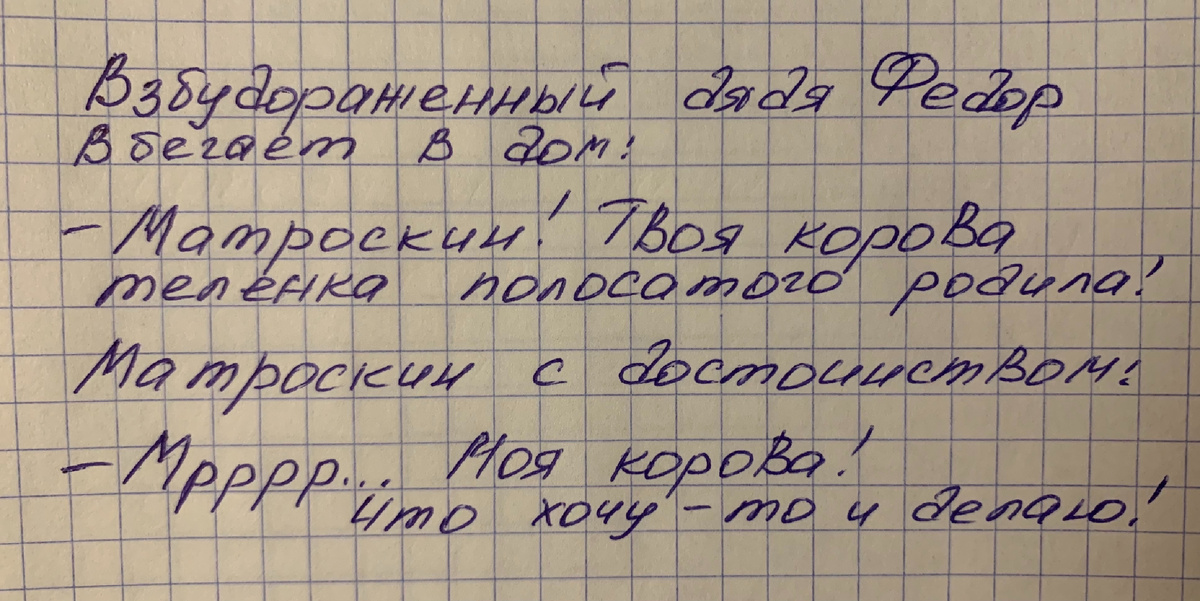 Взбудораженный дядя Федор
вбегает в дом:
- Матроскин! Твоя корова
теленка полосатого родила!
Матроскин с достоинством:
- Мрррр... Моя корова!
Что хочу - то и делаю!